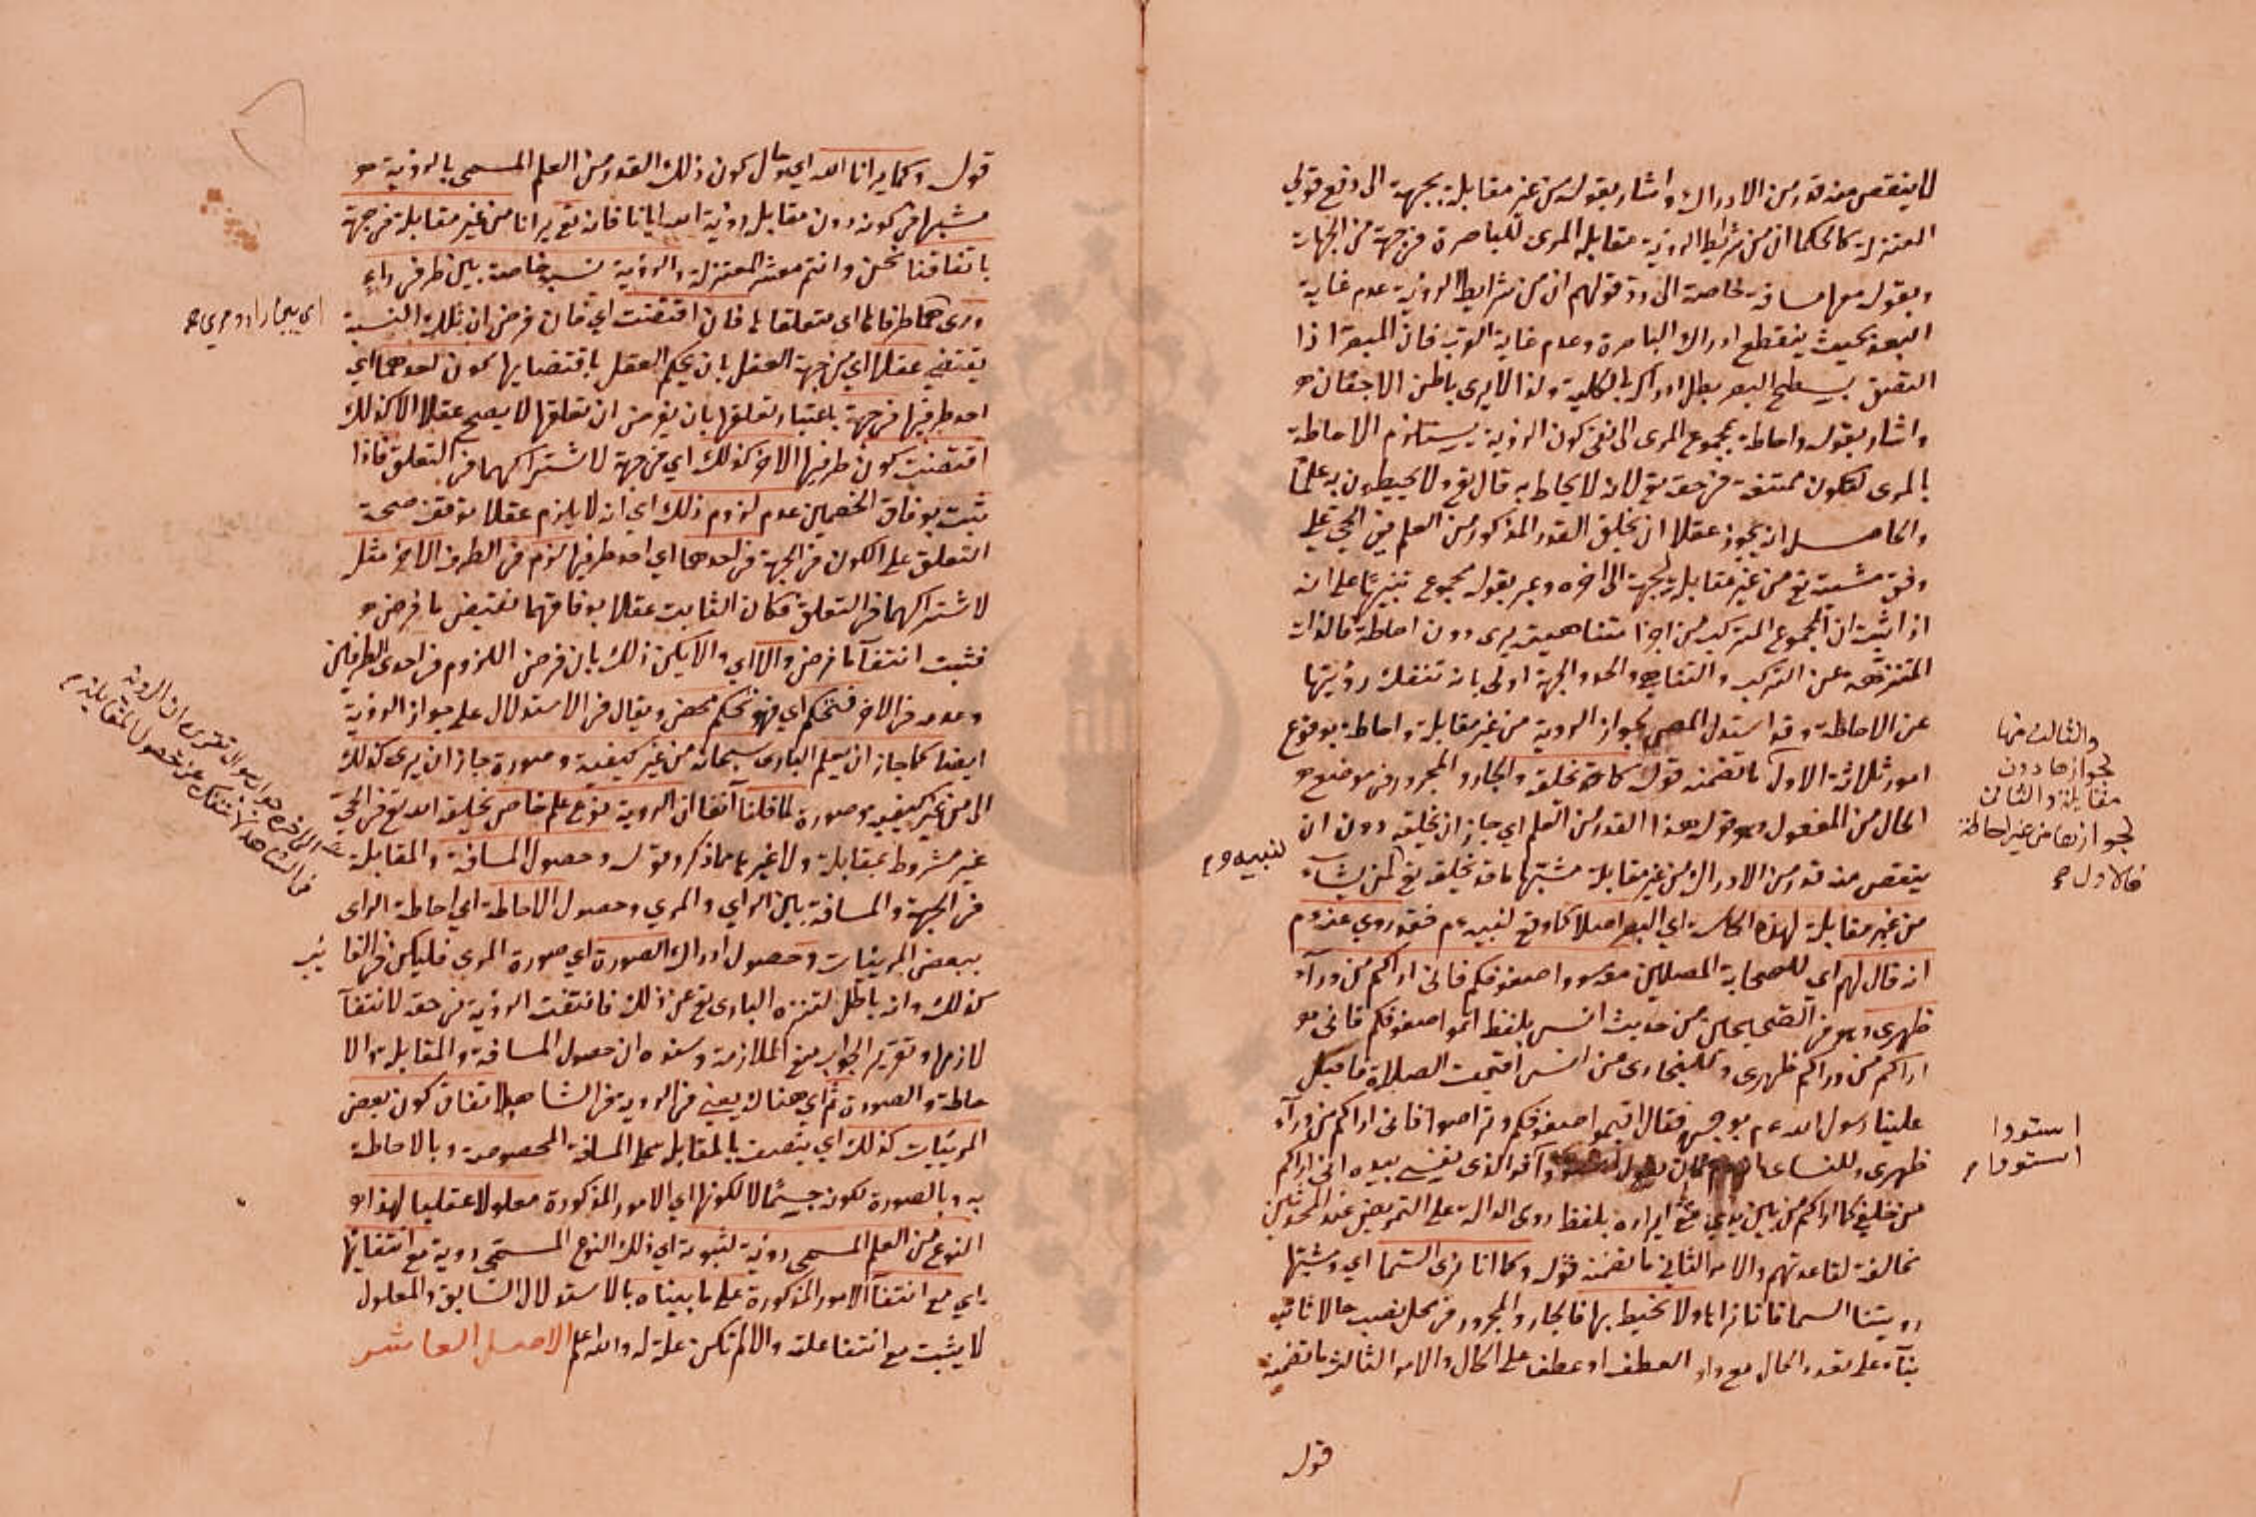 لا ينقص منه قدر من الادراك واشار بقوله من غير مقابلة بجهة الى دفع قول
المعتزلة كالحكما ان من شرايط الروية مقابلة المرى للباصرة في جهة من الجهات
وبقوله معها مسافة خاصة الى رد قولهم ان من شرايط الروية عدم غاية
البعد بحيث ينقطع ادراك الباصرة وعدم غاية القرب فان المبصر اذا
التصق بسطح البصر بطل ادراكه بالكلية ولذا لا يرى باطن الاجفان
واشار بقوله واحاطة بمجموع المرى الى نفى كون الروية يستلزم الاحاطة
بالمرى لتكون ممتنعة في حقه تع لانه لا يحاط به قال تع ولا يحيطون به علما
والحاصل انه يجوز عقلا ان يخلق القدر المذكور من العلم في الحي على
وفق مشيته تع من غير مقابلة لجهة الى اخره وعبر بقوله مجموع تنبيها على انه
اذا ثبت ان المجموع المتركب من اجزا متناهية يرى دون احاطة فالذات
المتنزهة عن التركب والتناهى والحد والجهة اولى بان تنفك رؤيتها
عن الاحاطة وقد استدل المص لجواز الروية من غير مقابلة واحاطة بوقوع
امور ثلاثة الاول ما تضمنه قوله كما قد تخلقه والجار والمجرور في موضع
الحال من المفعول وهو قوله هذا القدر من العلم اي جاز ان يخلقه دون ان
ينقص منه قدر من الادراك من غير مقابلة مشبها ما قد يخلقه تع لمن يشاء
من غير مقابلة لهذه الحاسة اي البصر اصلا كما وقع لنبيه عم فقد روي عنه عم
انه قال لهم اي للصحابة المصلين معه سووا صفوفكم فانى اراكم من ورآء
ظهرى وهو في الصحيحين من حديث انس بلفظ اتموا صفوفكم فانى
اراكم من وراكم ظهرى وللبخارى من انس اقيمت الصلاة فاقبل
علينا رسول الله عم بوجهه فقال اقيموا صفوفكم وتراصوا فانى اراكم من ورآء
ظهرى وللنساى انه عم كان يقول استووا والذى نفسى بيده انى اراكم
من خلفي كما اراكم من بين يدي ايراده بلفظ روى الدالة على التمريض عند المحدثين
مخالفة لقاعدتهم والامر الثاني ما تضمنه قوله وكما انا نرى السما اي ومشبها
رويتنا السما فانا نراها ولا نحيط بها فالجار والمجرور في محل نصب حالا ثانيه
بنآء على تعدد الحال مع واو العطف او عطفا على الحال والامر الثالث ما تضمنه
قوله
والثالث منها
لجوازها دون
مقابلة والثانى
لجوازها من غير احاطة
فالاول
لنبيه عم
استووا
استووا
قوله وكما يرانا الله اي حال كون ذلك القدر من العلم المسمى بالروية
مشبها في كونه دون مقابلة رؤية الله ايانا فانه تع يرانا من غير مقابلة في جهة
باتفاقنا نحن وانتم معشر المعتزلة والروية نسبة خاصة بين طرفي راءٍ
ومرى هما طرفاها اي متعلقاها فان اقتضت اي فان فرض ان تلك النسبة
تقتضي عقلا اي من جهة العقل بان يحكم العقل باقتضايها كون احدهما اي
احد طرفيها في جهة باعتبار تعلقها بان يفرض ان تعلقها لا يصح عقلا الا كذلك
اقتضت كون طرفيها الاخر كذلك اي في جهة لاشتراكهما في التعلق فاذا
ثبت بوفاق الخصمين عدم لزوم ذلك اي انه لا يلزم عقلا توقف صحة
التعلق على الكون في الجهة في احدهما اي احد طرفيها لزم في الطرف الاخر مثله
لاشتراكهما في التعلق فكان الثابت عقلا بوفاقهما نقيض ما فرض
فثبت انتفآ ما فرض والا اي والا يكن ذلك بان فرض اللزوم في احدى الطرفين
وعدمه في الاخر فتحكم اي فهو تحكم محض ويقال في الاستدلال على جواز الروية
ايضا كما جاز ان يعلم البارى سبحانه من غير كيفية وصورة جاز ان يرى كذلك
اى من غير كيفية وصورة لما قلنا آنفا ان الروية نوع علم خاص يخلقه الله تع في الحي
غير مشروط بمقابلة ولا غيرها مما ذكر وقوله وحصول المسافة والمقابلة
في الجهة والمسافة بين الراي والمري وحصول الاحاطة اي احاطة الراى
ببعض المرييات وحصول ادراك الصورة اي صورة المرى فليكن في الغائب
كذلك وانه باطل لتنزه البارى تع عن ذلك فانتفت الروية في حقه لانتفآ
لازمها وتقرير الجواب منع الملازمة وسنده ان حصول المسافة والمقابلة والا
حاطة والصورة ثم اي هناك يعني في الروية في الشاهد لاتفاق كون بعض
المرييات كذلك اي يتصف بالمقابلة على المسافة المخصوصة وبالاحاطة
به وبالصورة لكونه جسمًا لا لكونها اي الامور المذكورة معلولا عقليا لهذا
النوع من العلم المسمى رؤية لثبوته اي ذلك النوع المسمى روية مع انتفايها
اي مع انتفآ الامور المذكورة على ما بيناه بالاستدلال السابق والمعلول
لا يثبت مع انتفا علته والا لم تكن علة له والله اعلم الاصل العاشر